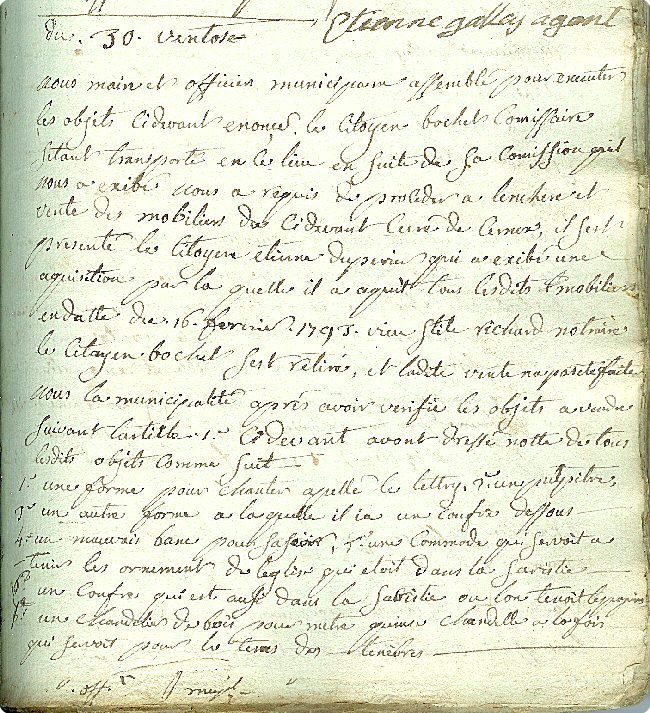 Etienne gallay agent
du. 30. ventose
nous maire et officier municipaux assemblé pour executer
les objets cidevant enoncé. le Citoyen bochet Comissaire
setant transporté en ce lieu en suite de sa Comission quil
nous a exibé nous a requis de proceder a lenchere et
vente des mobiliers du cidevant Curé de , il sest
presenté le Citoyen etienne duperier qui a exibé une
aquisition par la quelle il a aquit tous lesdits mobiliers
en datte du 16. fevrier. 1793. vieu stile richard notaire
le Citoyen bochet sest retiré, et ladite vente na pas eté faite
nous la municipalité aprés avoir verifié les objets a vendre
suivant lartille 1.r Cidevant avont dressé notte de tous
lesdits objets comme suit
1.° une forme pour chanter apellé le lettry, 2.° un pulpitre,
3.° un autre forme a la quelle il ia un Coufre dessous
4.° un mauvais banc pour sasoir, 5.° une Commode qui servoit a
tenir les ornement de leglise qui etoit dans la sacristie
un Coufre qui est ausi dans la sacristie ou lon tenoit
un chandelier de bois pour mettre quinse chandelle a la fois
qui servoit pour le tems des ténébres
off.r